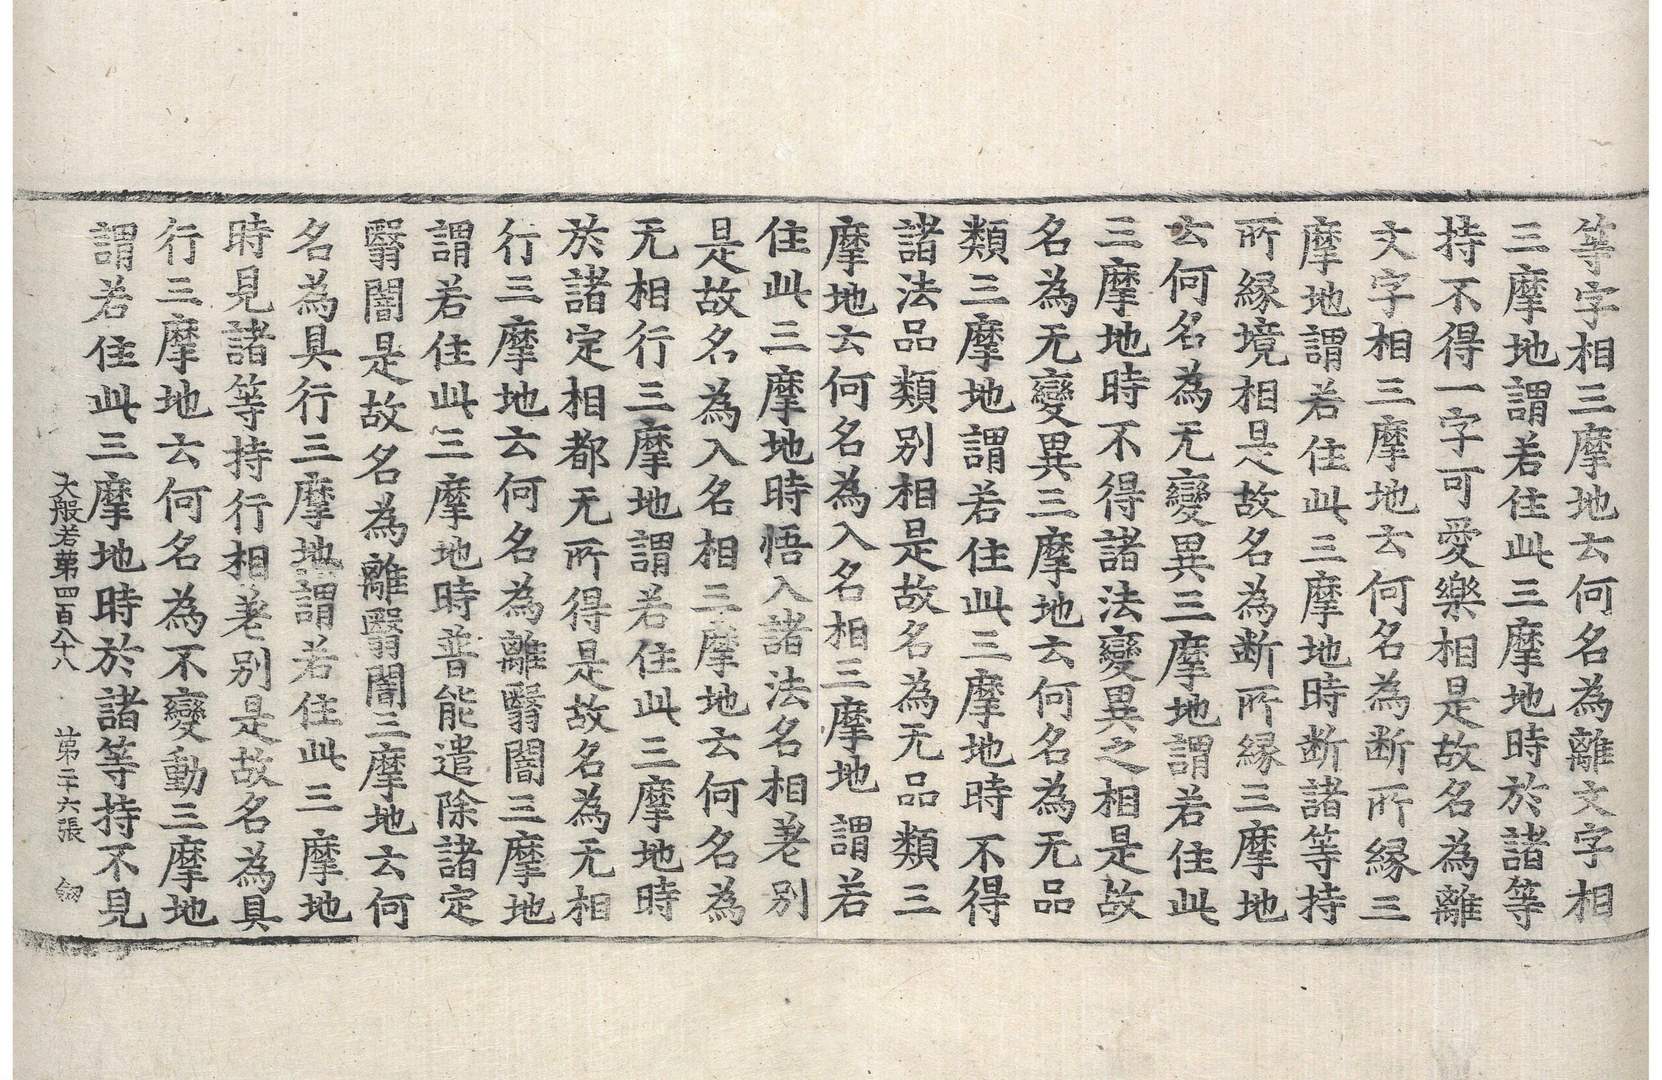 等字相三摩地云何名為離文字相
三摩地謂若住此三摩地時於諸等
持不得一字可愛樂相是故名為離
文字相三摩地云何名為断所緣三
摩地謂若住此三摩地時断諸等持
所緣境相是故名為断所緣三摩地
云何名為无變異三摩地謂若住此
三摩地時不得諸法變異之相是故
名為无變異三摩地云何名為无品
類三摩地謂若住此三摩地時不得
諸法品類別相是故名為无品類三
摩地云何名為入名相三摩地謂若
住此三摩地時悟入諸法名相差別
是故名為入名相三摩地云何名為
无相行三摩地謂若住此三摩地時
於諸定相都无所得是故名為无相
行三摩地云何名為離翳闇三摩地
謂若住此三摩地時普能遣除諸定
翳闇是故名為離翳闇三摩地云何
名為具行三摩地謂若住此三摩地
時見諸等持行相差別是故名為具
行三摩地云何名為不變動三摩地
謂若住此三摩地時於諸等持不見
大般若第四百八十八 第二十六張 劒